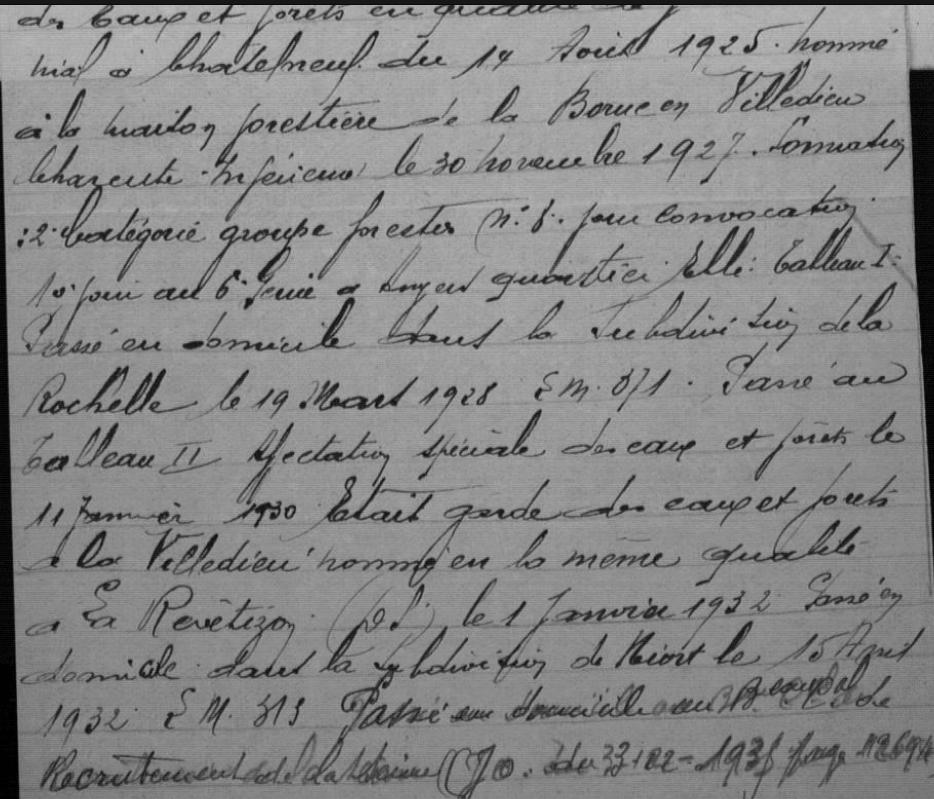 des Eaux et forêts en qualité de
à Chatelneuf du 14 Août 1925. nommé
à la maison forestière de la Borne en Villedieu
Charente-Inférieure le 30 novembre 1927. Formation
:2e Catégorie groupe forestier n° 8. pour convocation
1er jour au 6e Génie à Angers quartier Eblé. Tableau I.
Passé en domicile dans la Subdivision de la
Rochelle le 19 Mars 1928 E M. 871. Passé au
Tableau II Affectation spéciale des eaux et forêts le
11 Janvier 1930 Etait garde des eaux et forets
a la Villedieu nommé en la même qualité
a La Revêtizon (D.S) le 1 Janvier 1932 Passé en
domicile dans la subdivision de Niort le 15 Avril
1932 E M. 313 Passé au Bureau de
Recrutement de la Seine (J.O. du 1935 page